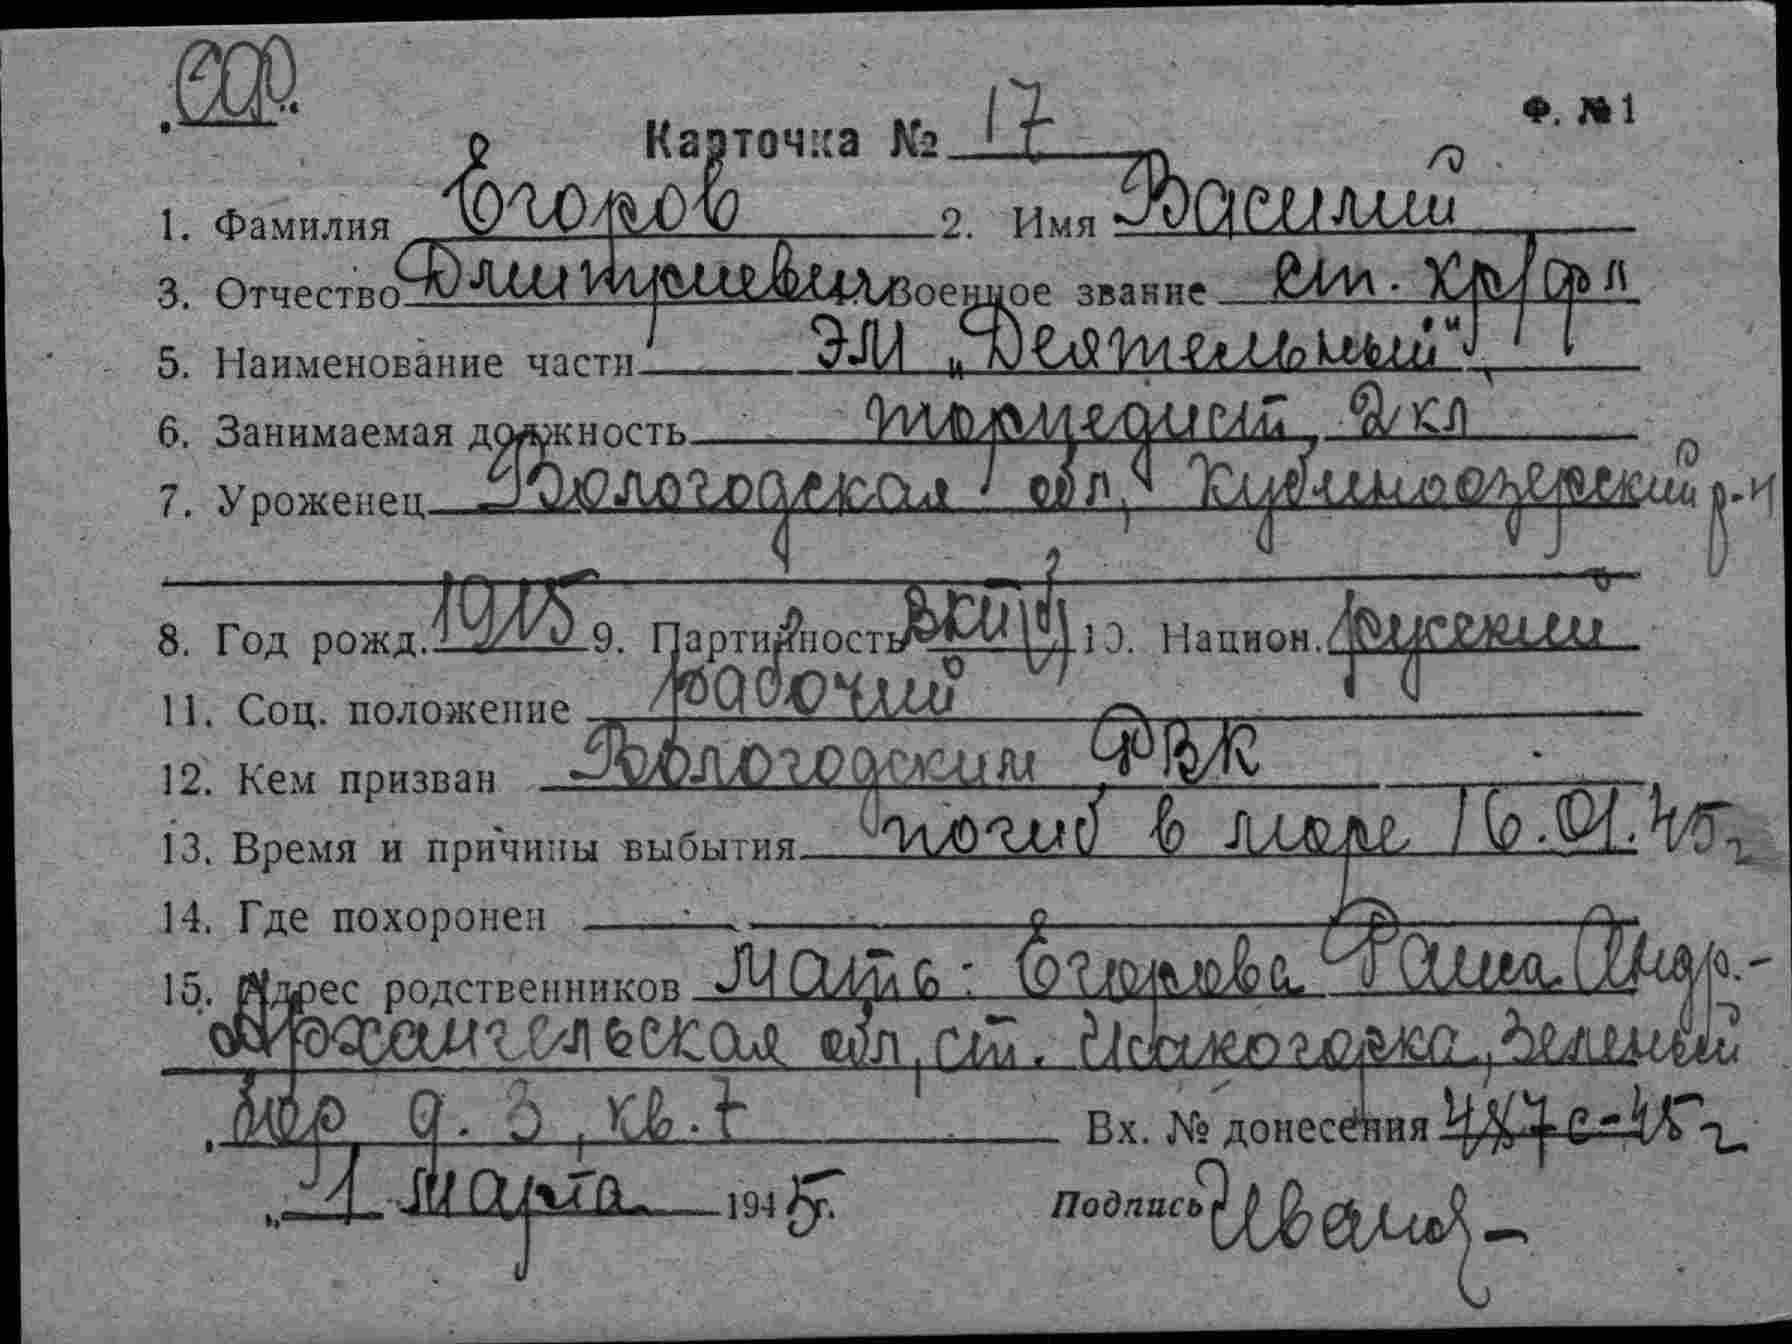 Ф. № 1
Карточка № 17
1. Фамилия Егоров 2. Имя Василий
3. Отчество Дмитриевич Военное звание ст. кр/фл
5. Наименование части ЭМ „Деятельный"
6. Занимаемая должность торпедист 2 кл
7. Уроженец Вологодская обл, Кубиноозерский р-н
8. Год рожд. 1915 9. Партийность ВКП(б) 10. Национ. русский
11. Соц. положение рабочий
12. Кем призван Вологодским РВК
13. Время и причины выбытия погиб в море 16.01.45г
14. Где похоронен
15. Адрес родственников Мать: Егорова Раиса Андр.-
Архангельская обл, ст. Исакогорка, Зеленый
Бор д. 3, кв. 7 Вх. № донесения 487с-45г
„1 марта 1945г. Подпись